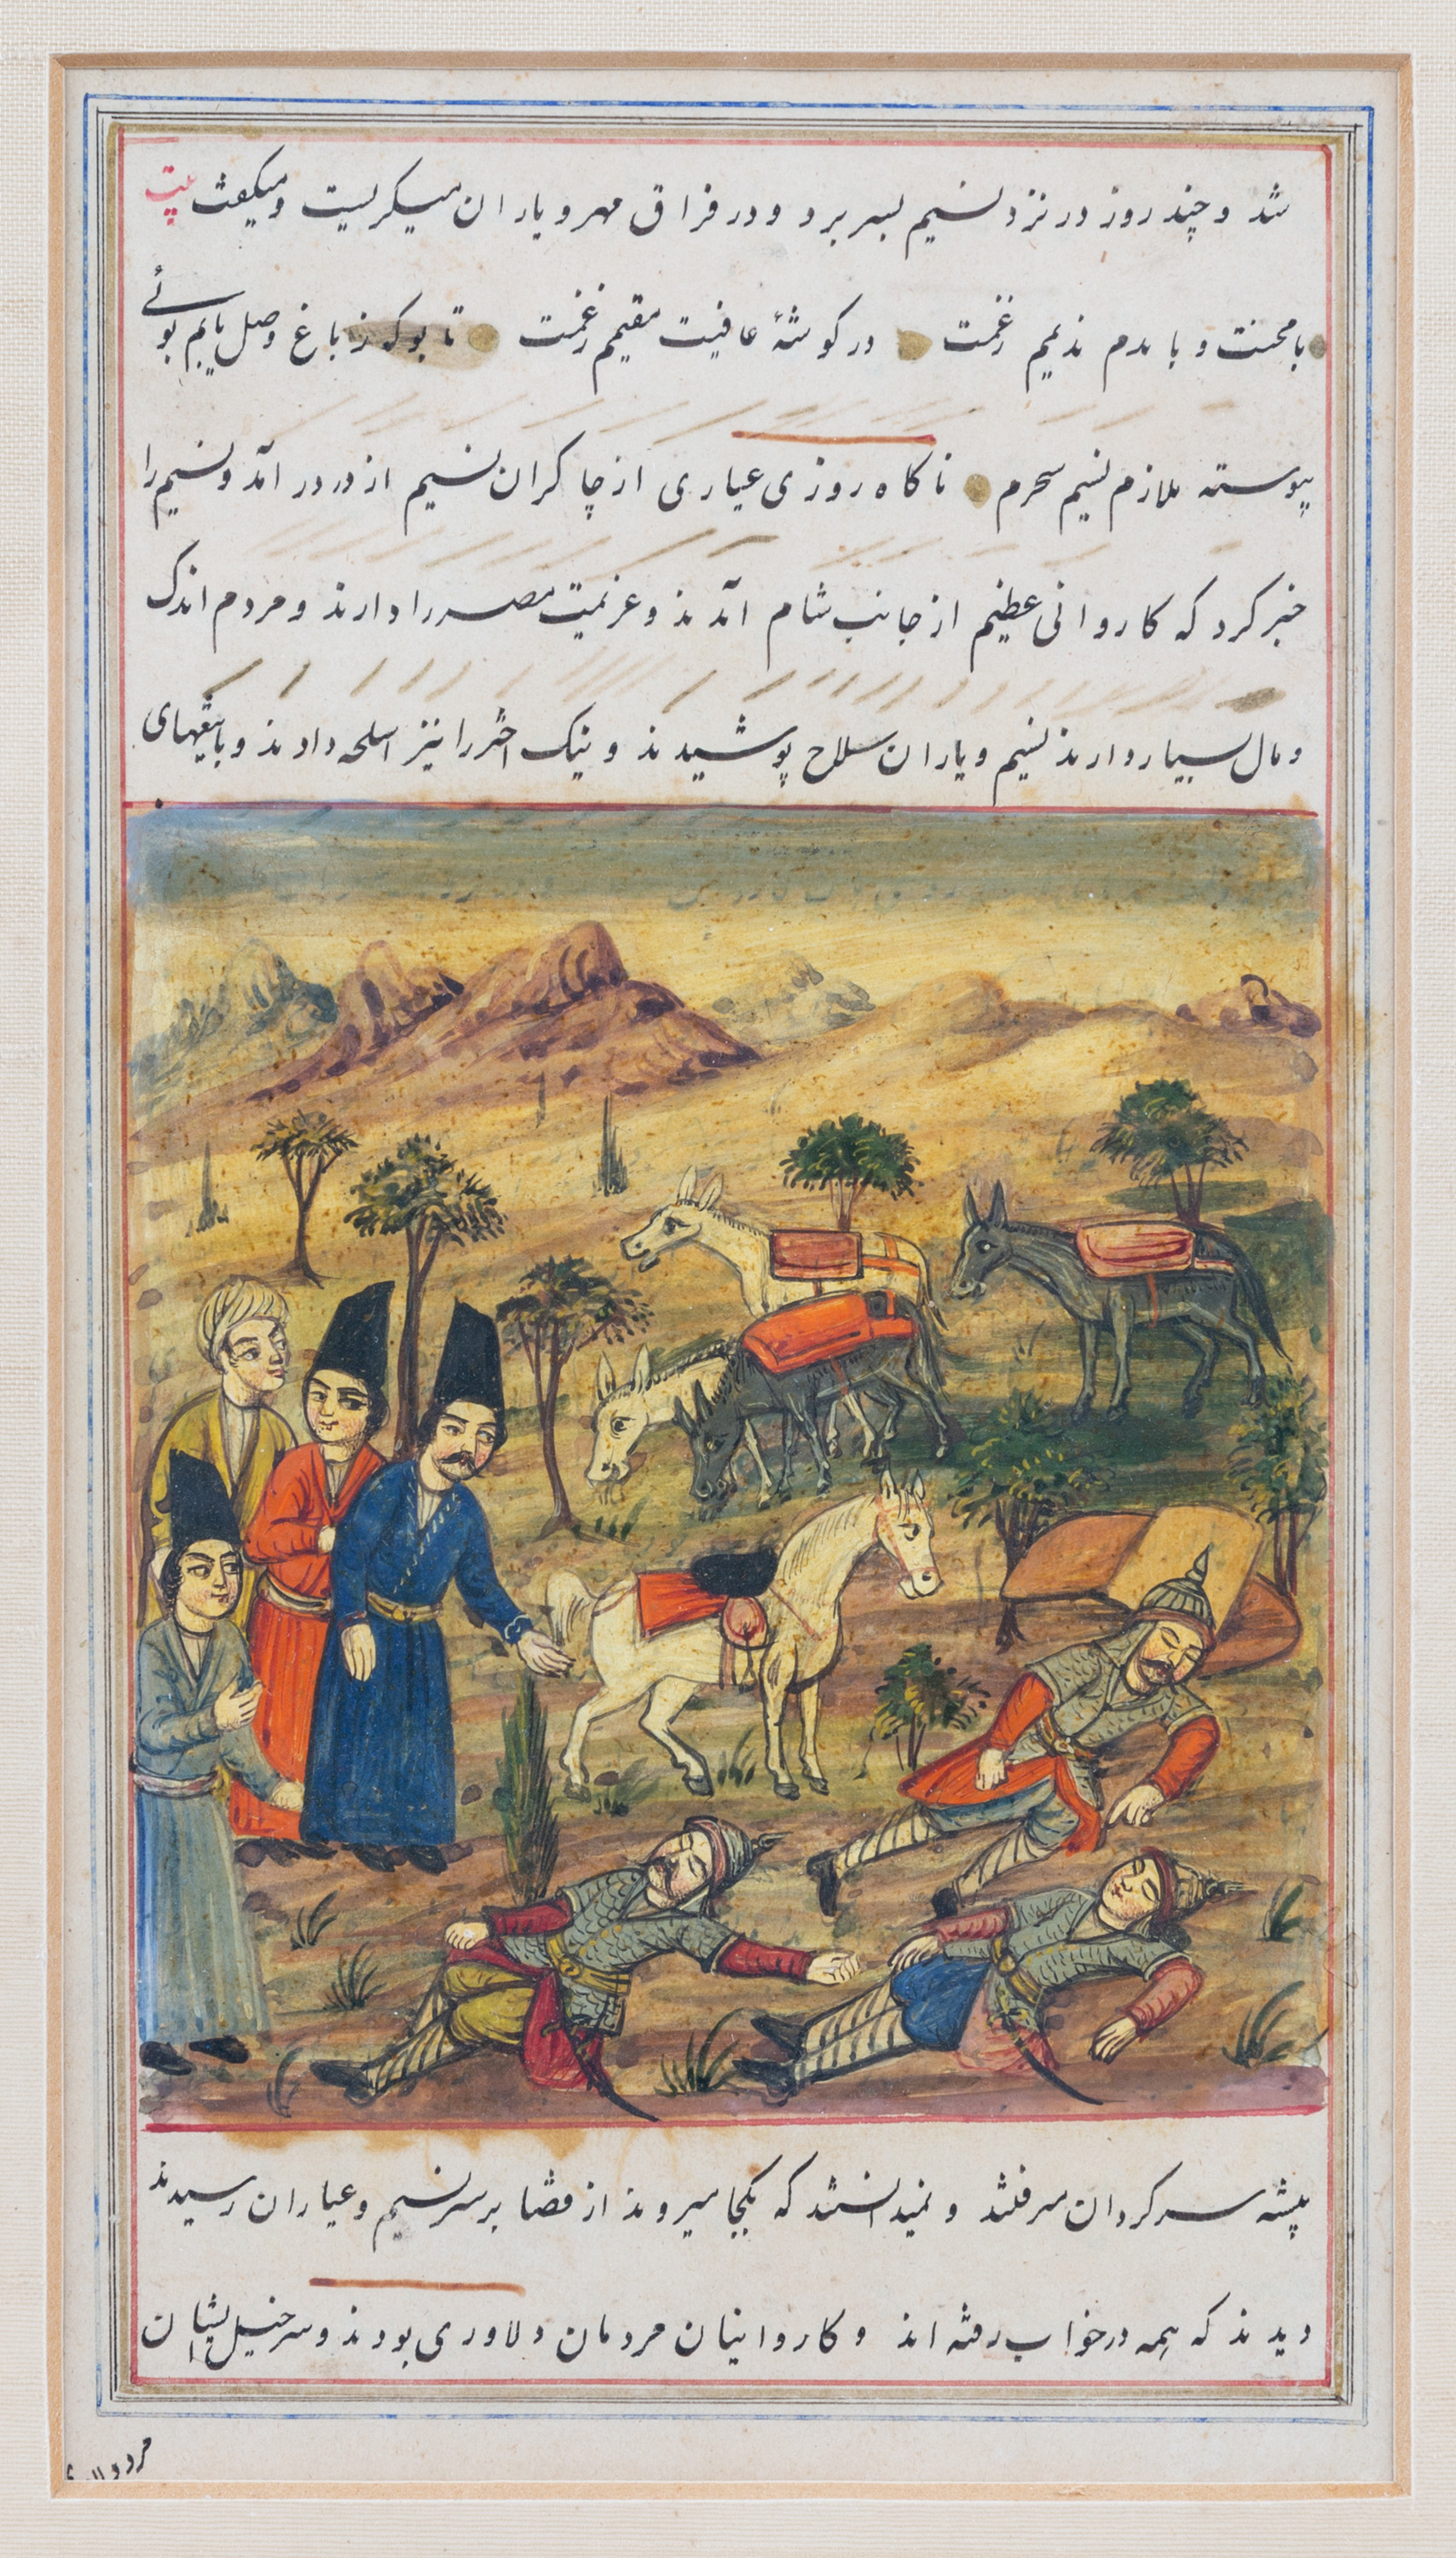 شد و چند روز در نزد نسیم بسر برد و در فراق مهر و یاران میکریست و میکفت بیت
با محنت و با ندم ندیمم زغمت در کوشهٔ عافیت مقیمم زغمت تا بو که ز باغ وصل یابم بوئے
پیوسته ملازم نسیم سحرم ناکاه روزی عیاری از چاکران نسیم از در در آمد و نسیم را
خبر کرد که کاروانی عظیم از جانب شام آمدند و عزیمت مصر را دارند و مردم اندک
و مال بسیار دارند نسیم و یاران سلاح پوشیدند و نیک اختر را نیز اسلحه دادند و با تیغهای
پیشه سرکردان میرفتند و نمیدانستند که بکجا میروند از قضا بر سر نسیم و عیاران رسیدند
دیدند که همه در خواب رفته اند و کاروانیان مردمان دلاوری بودند و سر خیل ایشان